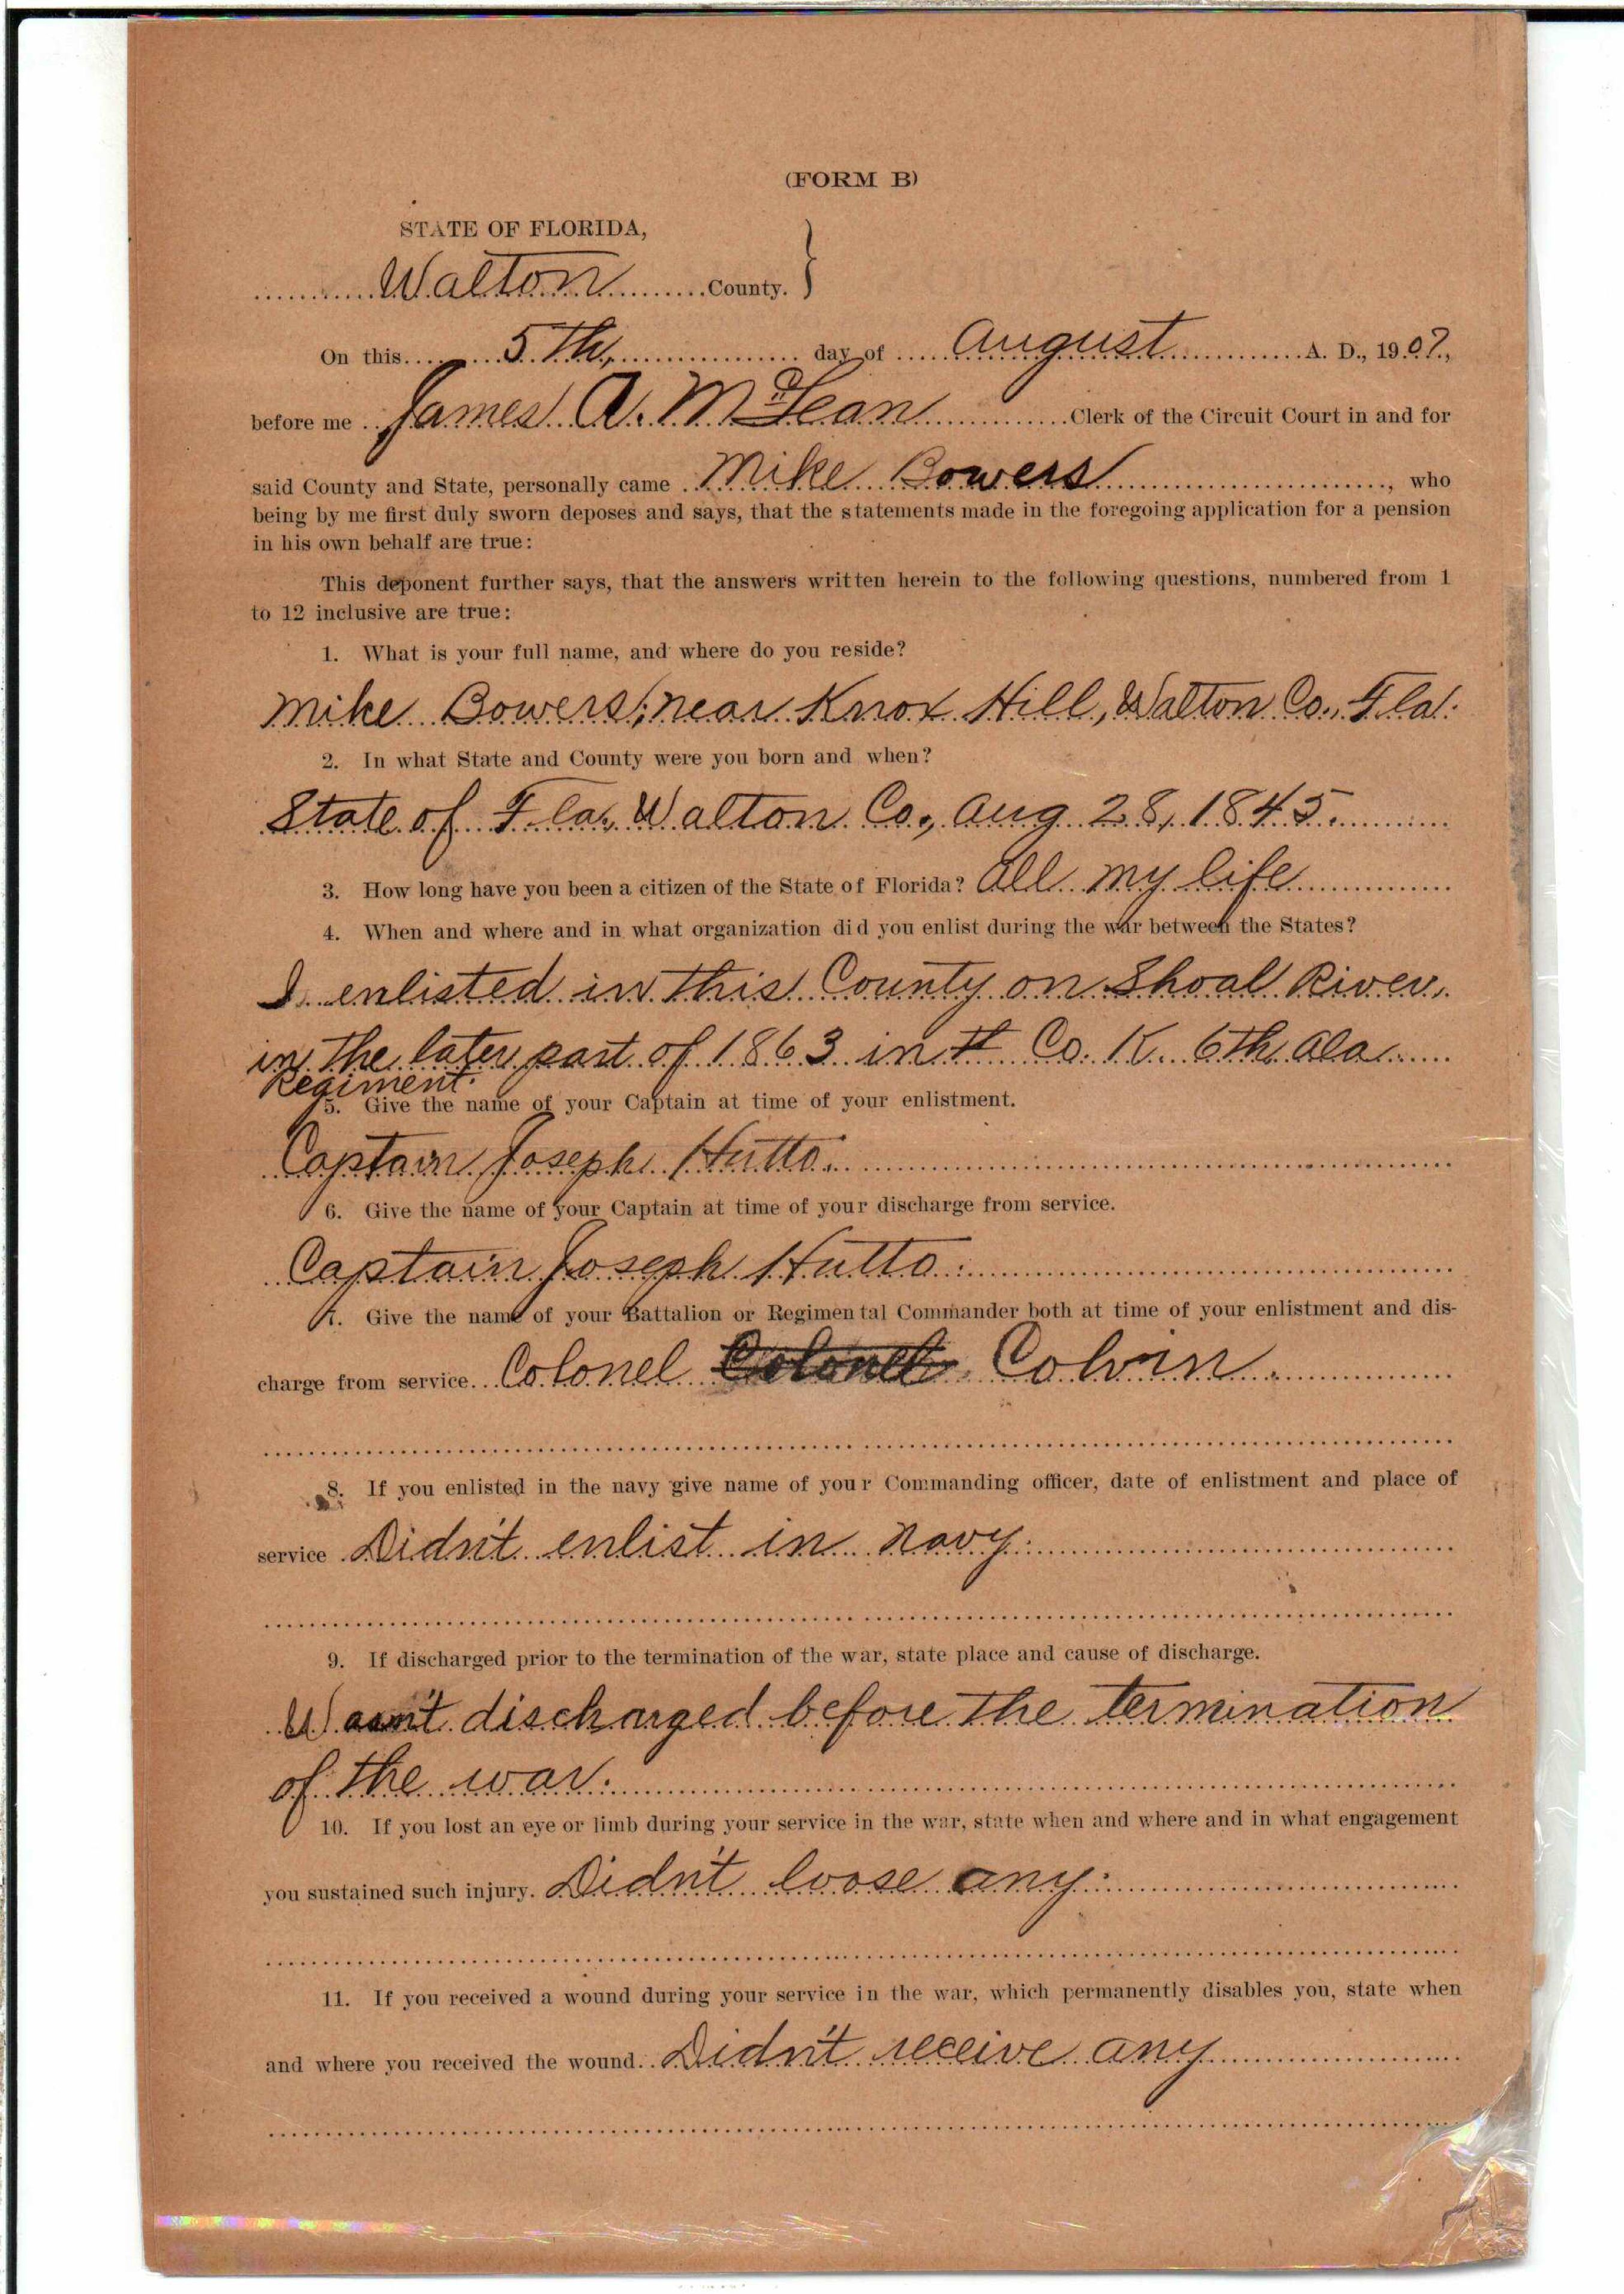 (FORM B)
STATE OF FLORIDA,
Walton County.
On this 5th, day of August A. D., 1907,
before me James A. McLean Clerk of the Circuit Court in and for
said County and State, personally came Mike Bowers, who
being by me first duly sworn deposes and says, that the statements made in the foregoing application for a pension
in his own behalf are true:
This deponent further says, that the answers written herein to the following questions, numbered from 1
to 12 inclusive are true:
1. What is your full name, and where do you reside?
Mike Bowers; near Knox Hill, Walton Co., Fla.
2. In what State and County were you born and when?
State of Fla., Walton Co., Aug 28, 1845.
3. How long have you been a citizen of the State of Florida? All my life
4. When and where and in what organization did you enlist during the war between the States?
I enlisted in this County on Shoal River,
in the later part of 1863 in Co. K. 6th Ala
Regiment.
5. Give the name of your Captain at time of your enlistment.
Captain Joseph Hutto.
6. Give the name of your Captain at time of your discharge from service.
Captain Joseph Hutto.
7. Give the name of your Battalion or Regimental Commander both at time of your enlistment and dis-
charge from service. Colonel Colonel Colvin.
8. If you enlisted in the navy give name of your Commanding officer, date of enlistment and place of
service Didn't enlist in navy.
9. If discharged prior to the termination of the war, state place and cause of discharge.
Wasn't discharged before the termination
of the war.
10. If you lost an eye or limb during your service in the war, state when and where and in what engagement
you sustained such injury. Didn't loose any.
11. If you received a wound during your service in the war, which permanently disables you, state when
and where you received the wound. Didn't receive any